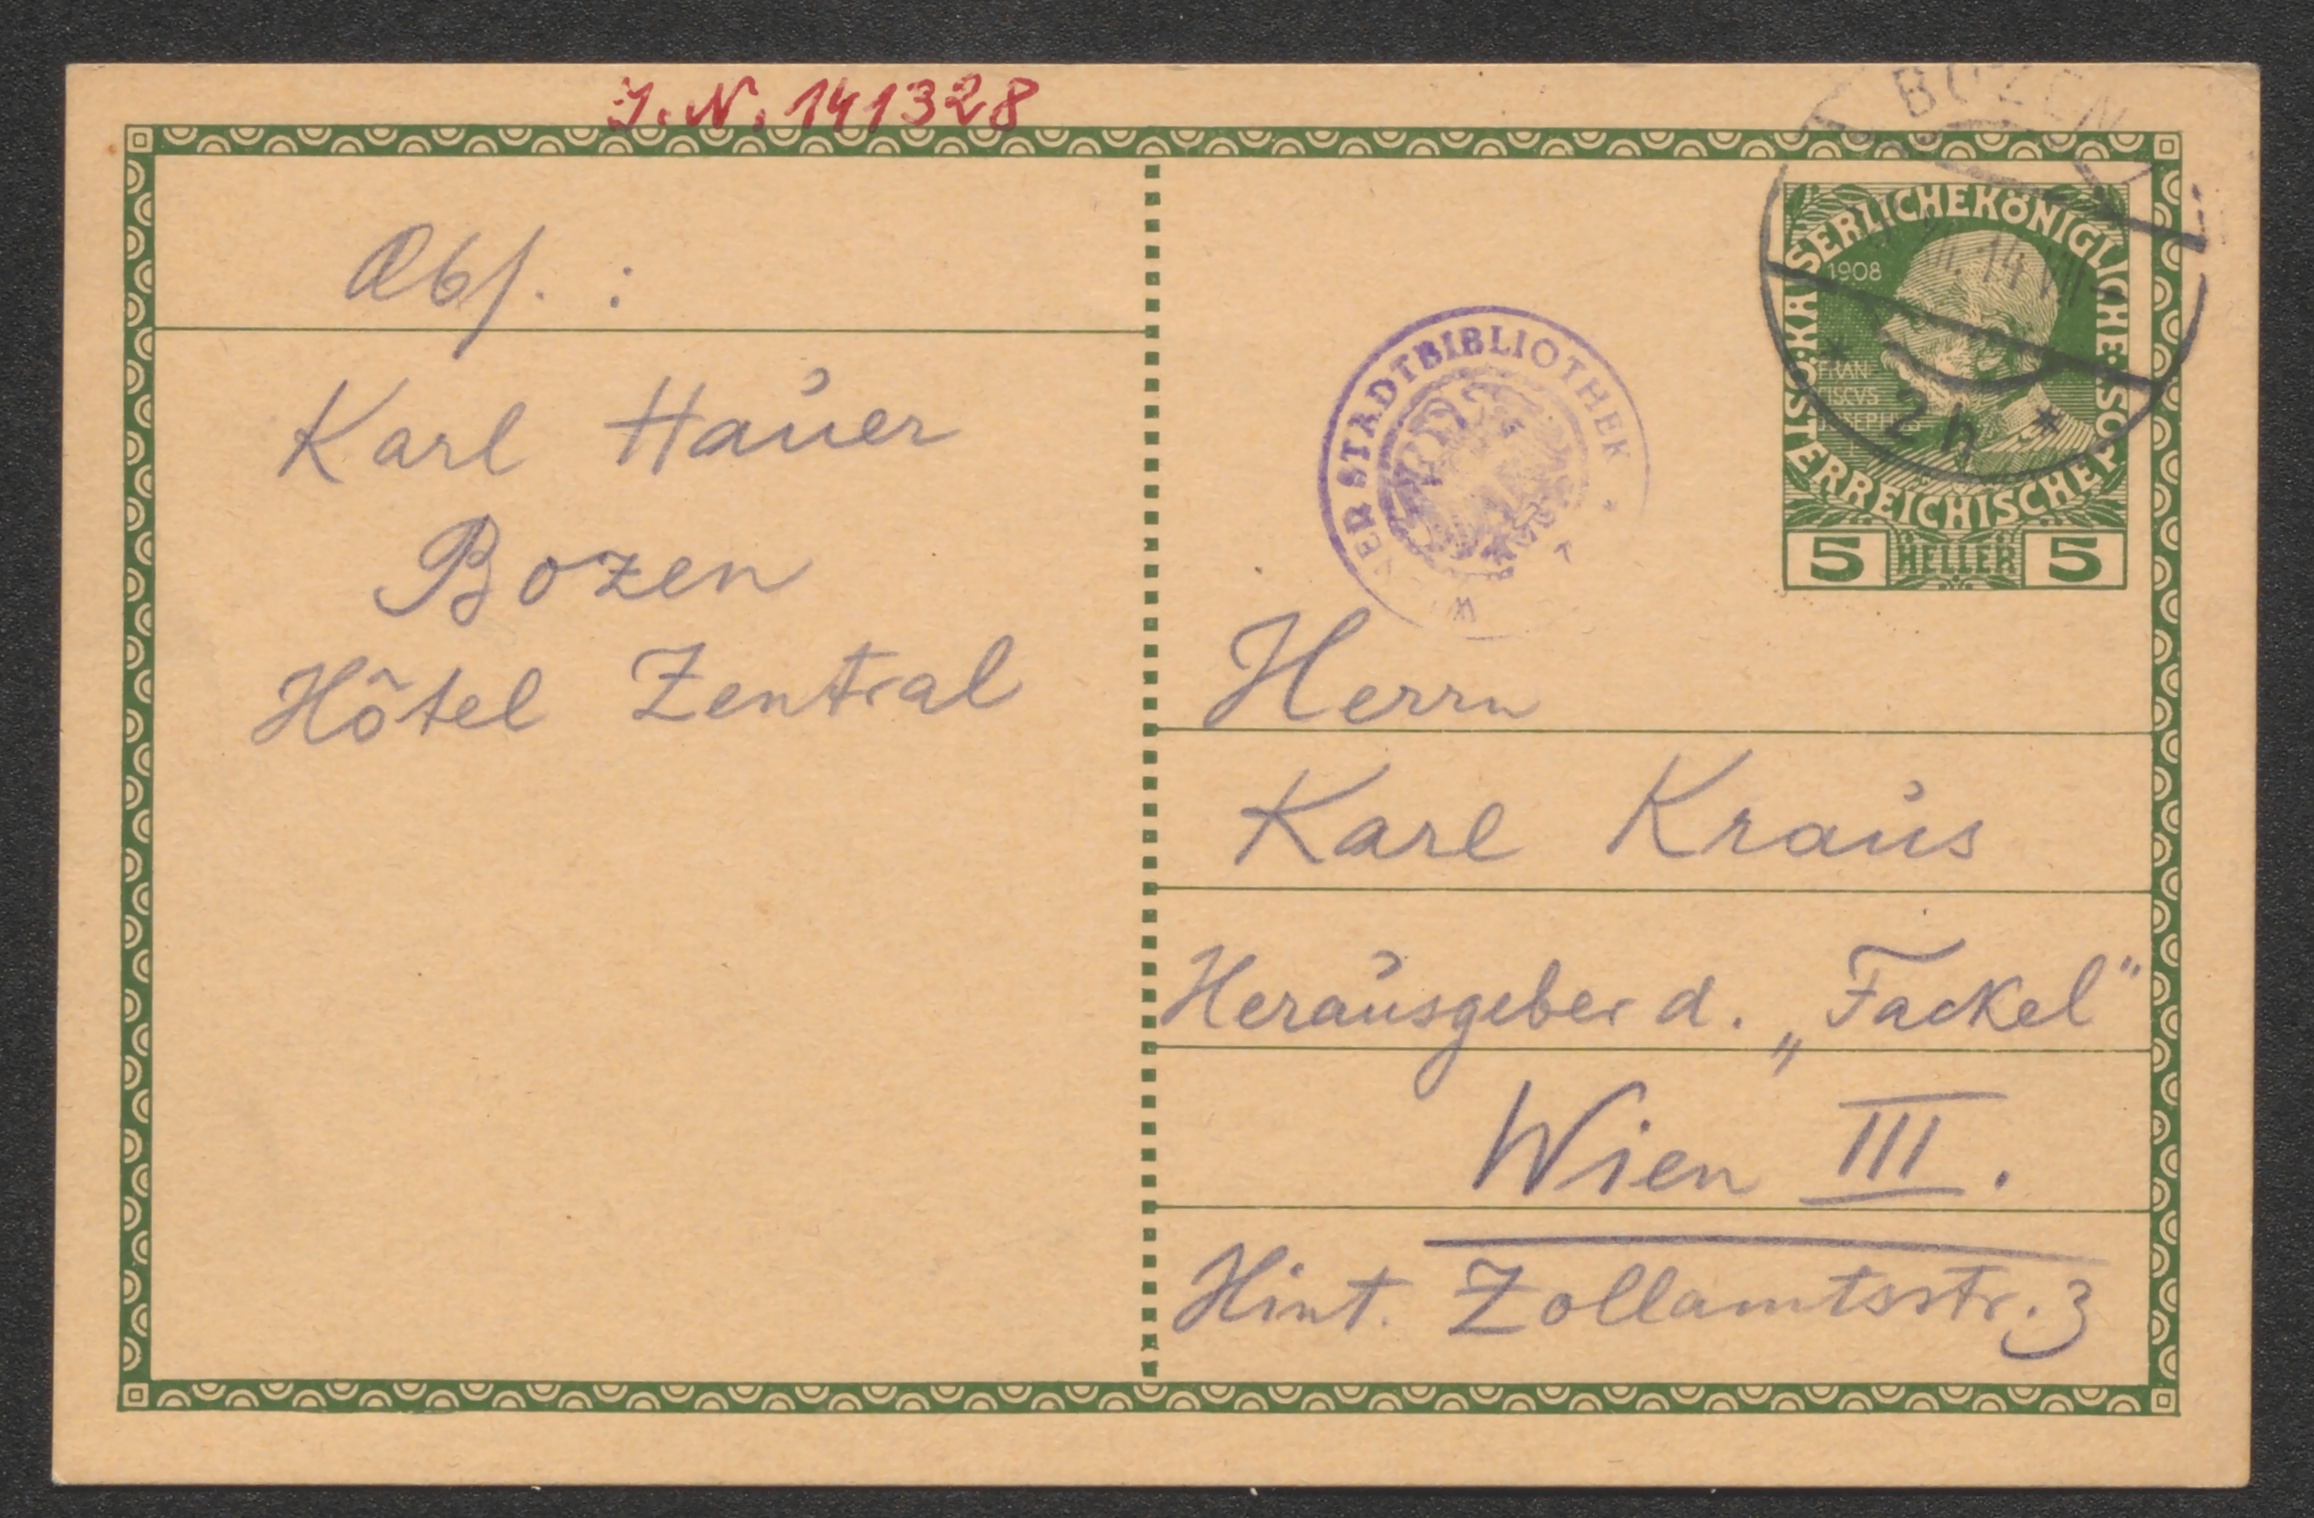 I.N. 141328
Abs. :
Karl Hauer
Bozen
Hôtel Zentral
BOZEN
14 VII
* 2h *
KAISERLICHE KÖNIGLICHE
ÖSTERREICHISCHE POST
1908
FRAN
CISCVS
IOSEPHVS
5 HELLER 5
WIENER STADTBIBLIOTHEK
Herrn
Karl Kraus
Herausgeber d. „Fackel"
Wien III.
Hint. Zollamtsstr. 3